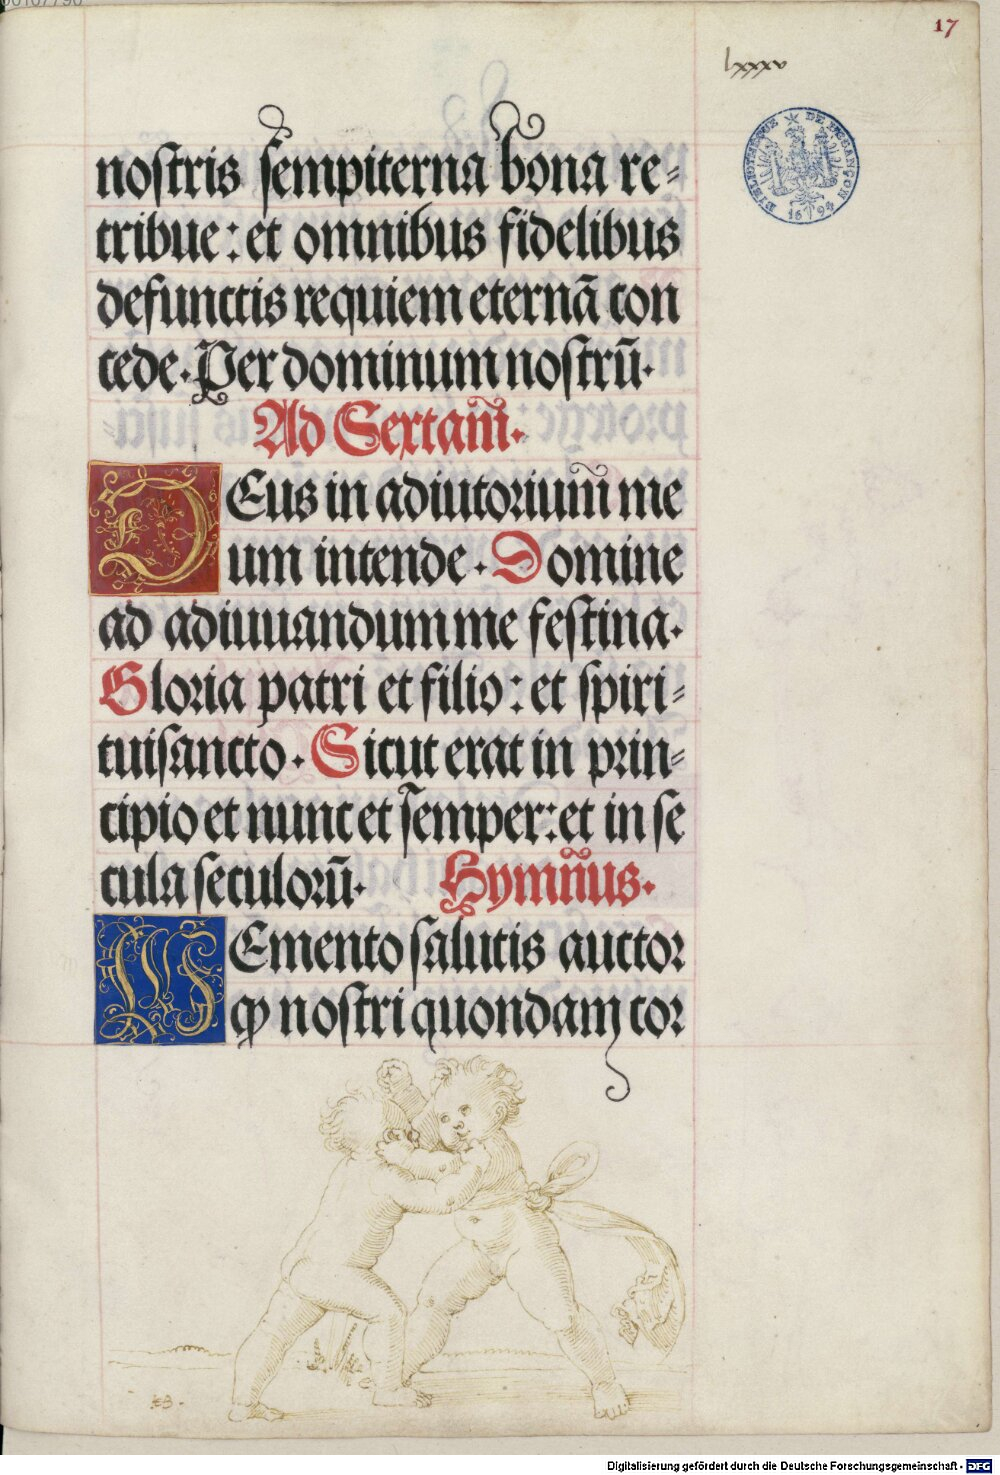 17
lxxxv
BIBLIOTHEQUE DE BESANÇON
1694
nostris sempiterna bona re-
tribue: et omnibus fidelibus
defunctis requiem eternā con
cede. Per dominum nostrū.
Ad Sextam̄.
DEus in adiutorium̄ me
um intende. Domine
ad adiuuandum me festina.
Gloria patri et filio: et spiri-
tuisancto. Sicut erat in prin-
cipio et nunc et semper: et in se
cula seculorū. Hym̄nus.
MEmento salutis auctor
ꝙ nostri quondam cor
Digitalisierung gefördert durch die Deutsche Forschungsgemeinschaft - DFG